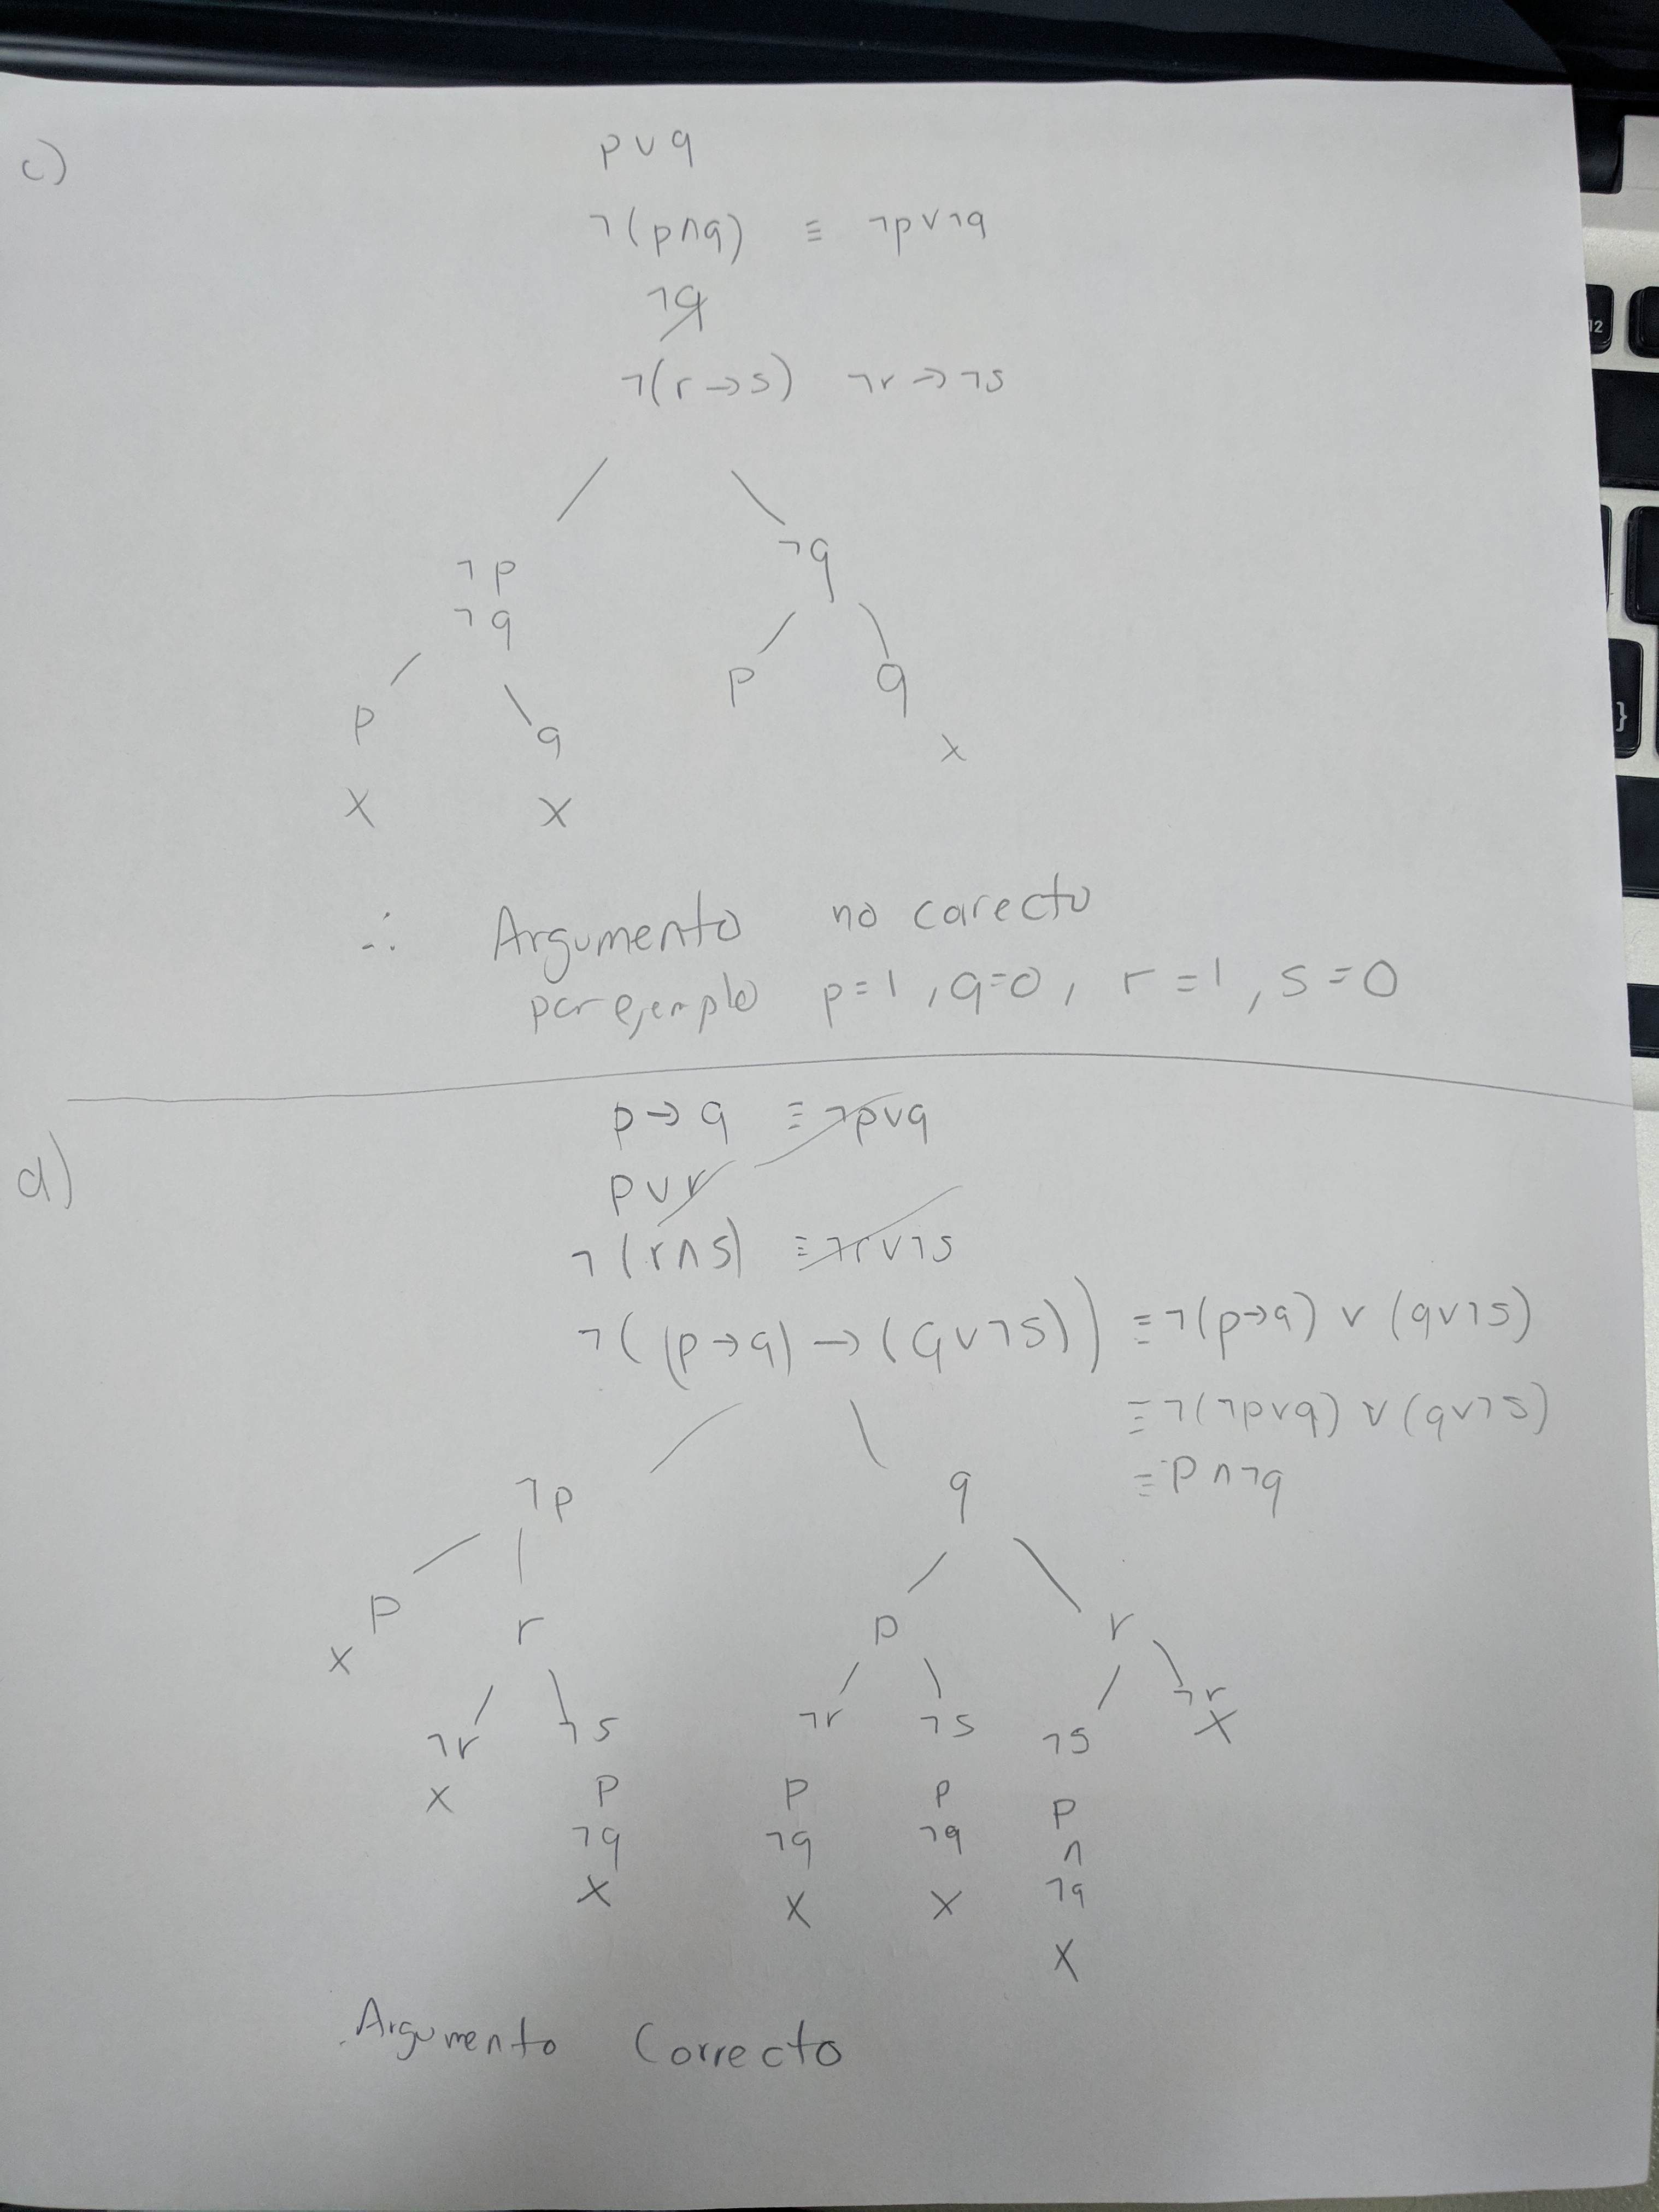 c)
p ∨ q
¬(p∧q) ≡ ¬p∨¬q
¬q
¬(r→s) ¬r→¬s
¬p ¬q
¬q
p q p q
x
x x
∴ Argumento no carecto
por ejemplo p=1, q=0, r=1, s=0
d)
p→q ≡ ¬p∨q
p∨r
¬(r∧s) ≡ ¬r∨¬s
¬((p→q)→(q∨¬s)) ≡ ¬(p→q) ∨ (q∨¬s)
≡ ¬(¬p∨q) ∨ (q∨¬s)
≡ p∧¬q
¬p q
p r p r
x
¬r ¬s ¬r ¬s ¬s ¬r
x x
p p p p
∧
¬q ¬q ¬q ¬q
x x x x
Argumento Correcto